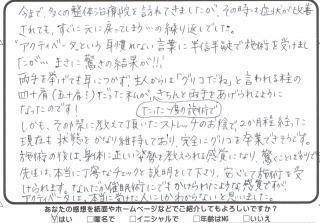 今まで、多くの整体治療院を訪れてきましたが、その時は症状が改善
されても、すぐに元に戻ってしまう…の繰り返しでした。
アクティベータという耳慣れない言葉に半信半疑で施術を受けまし
たが…まさに驚きの結果が!!
両手を挙げても耳につかず、主人からは「グリコだね」と言われる程の
四十肩(五十肩?)だった私が、きちんと両手をあげられるように
なったのです!
たった一度の施術で
しかも、その際に教えて頂いたストレッチのお陰で、2か月経った
現在も状態をかなり維持しており、完全にグリコを卒業できそうです。
施術の後は、身体に正しい姿勢を教えられる感覚になり、驚くことばかりで
先生は、本当に丁寧なチェックと説明をして下さり、安心して施術を受
けられます。なんだか催眠術にでもかけられたような感覚ですが、
アクティベータは本当に素晴しいとしか言いようがないと思いました。
あなたの感想を紙面やホームページなどでご紹介してもよろしいですか?
はい 匿名で イニシャルで 年齢はNG いいえ